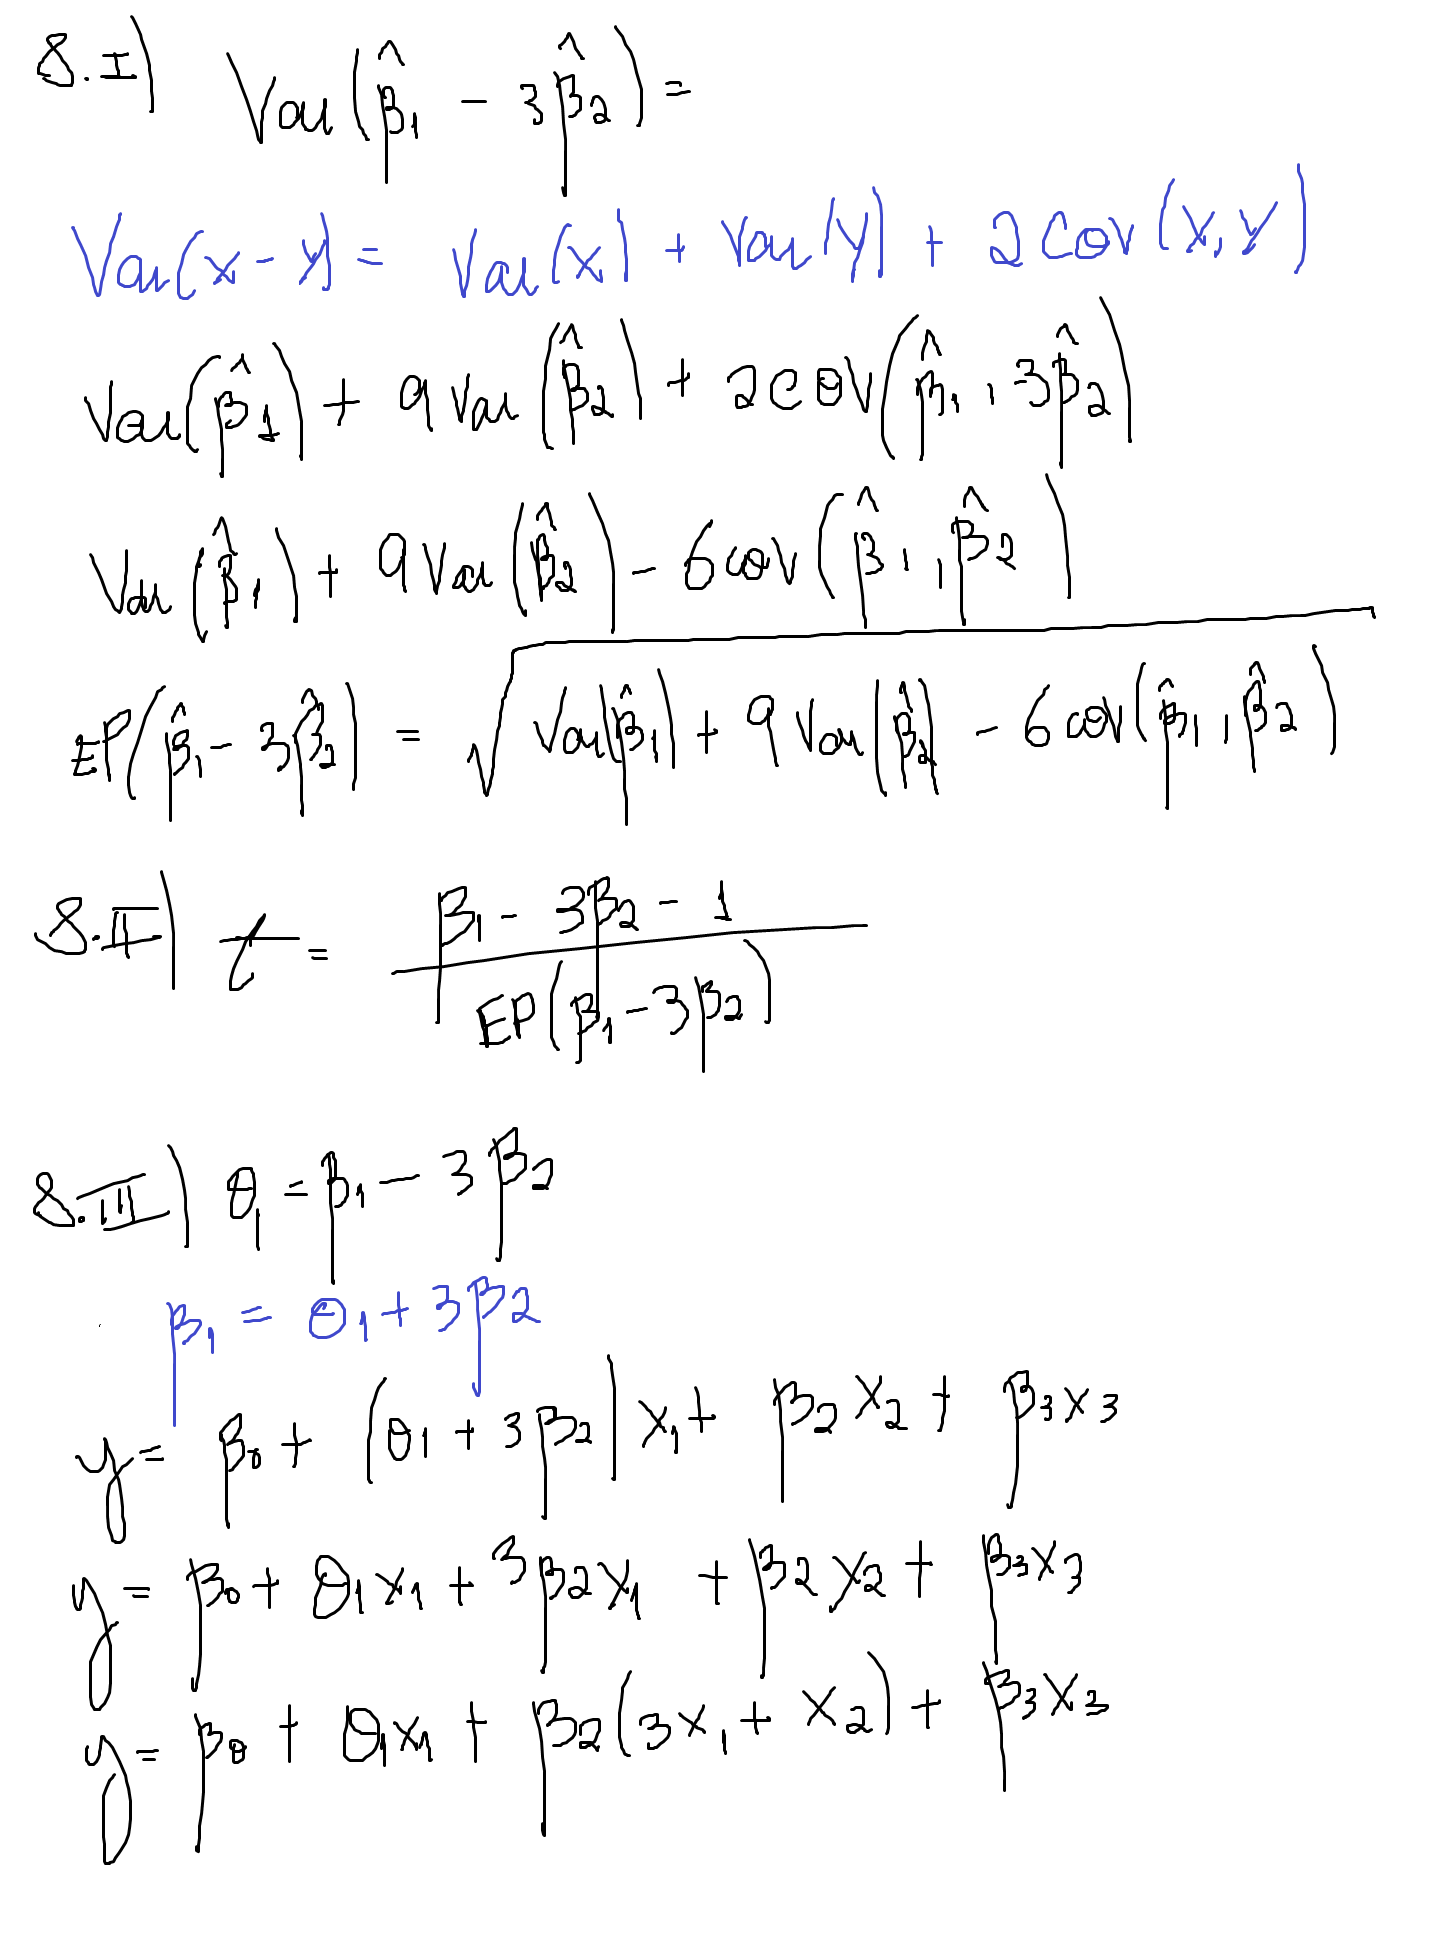 8.I) Var(β̂₁ - 3β̂₂) =
Var(x - y) = Var(x) + Var(y) + 2cov(x,y)
Var(β̂₁) + 9Var(β̂₂) + 2cov(β̂₁, -3β̂₂)
Var(β̂₁) + 9Var(β̂₂) - 6cov(β̂₁, β̂₂)
EP(β̂₁ - 3β̂₂) = √(Var(β̂₁) + 9Var(β̂₂) - 6cov(β̂₁, β̂₂))
8.II) t = (β₁ - 3β₂ - 1) / EP(β₁ - 3β₂)
8.III) θ₁ = β₁ - 3β₂
β₁ = θ₁ + 3β₂
y = β₀ + (θ₁ + 3β₂)x₁ + β₂x₂ + β₃x₃
y = β₀ + θ₁x₁ + 3β₂x₁ + β₂x₂ + β₃x₃
y = β₀ + θ₁x₁ + β₂(3x₁ + x₂) + β₃x₃